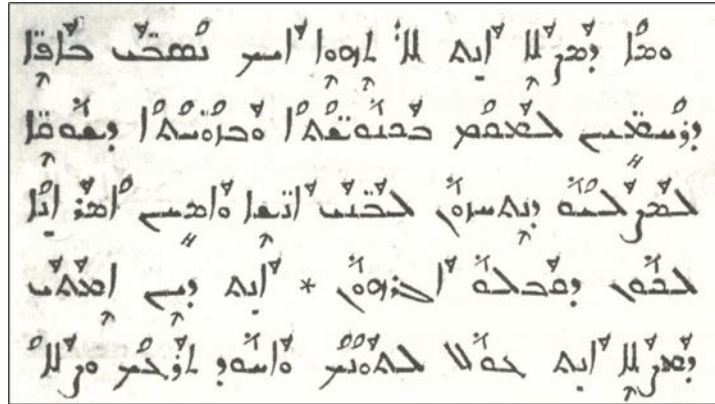 ܘܡܐ ܕܡܨܠܐ ܐܢܬ ܠܐ ܬܗܘܐ ܐܝܟ ܢܣ̈ܒܝ ܒܐܦ̈ܐ
ܕܪܚܡܝ̈ܢ ܠܡܩܡ ܒܟܢܘܫ̈ܬܐ ܘܒܙܘ̈ܝܬܐ ܕܫܘܩ̈ܐ
ܠܡܨܠܝܘ ܕܢܬܚܙܘܢ ܠܒܢ̈ܝ ܐܢ̈ܫܐ ܘܐܡܝܢ ܐܡܪ ܐܢܐ
ܠܟܘܢ ܕܩܒܠܘ ܐܓܪܗܘܢ * ܐܢܬ ܕܝܢ ܐܡܬܝ
ܕܡܨܠܐ ܐܢܬ ܥܘܠ ܠܬܘܢܟ ܘܐܚܘܕ ܬܪܥܟ ܘܨܠܐ